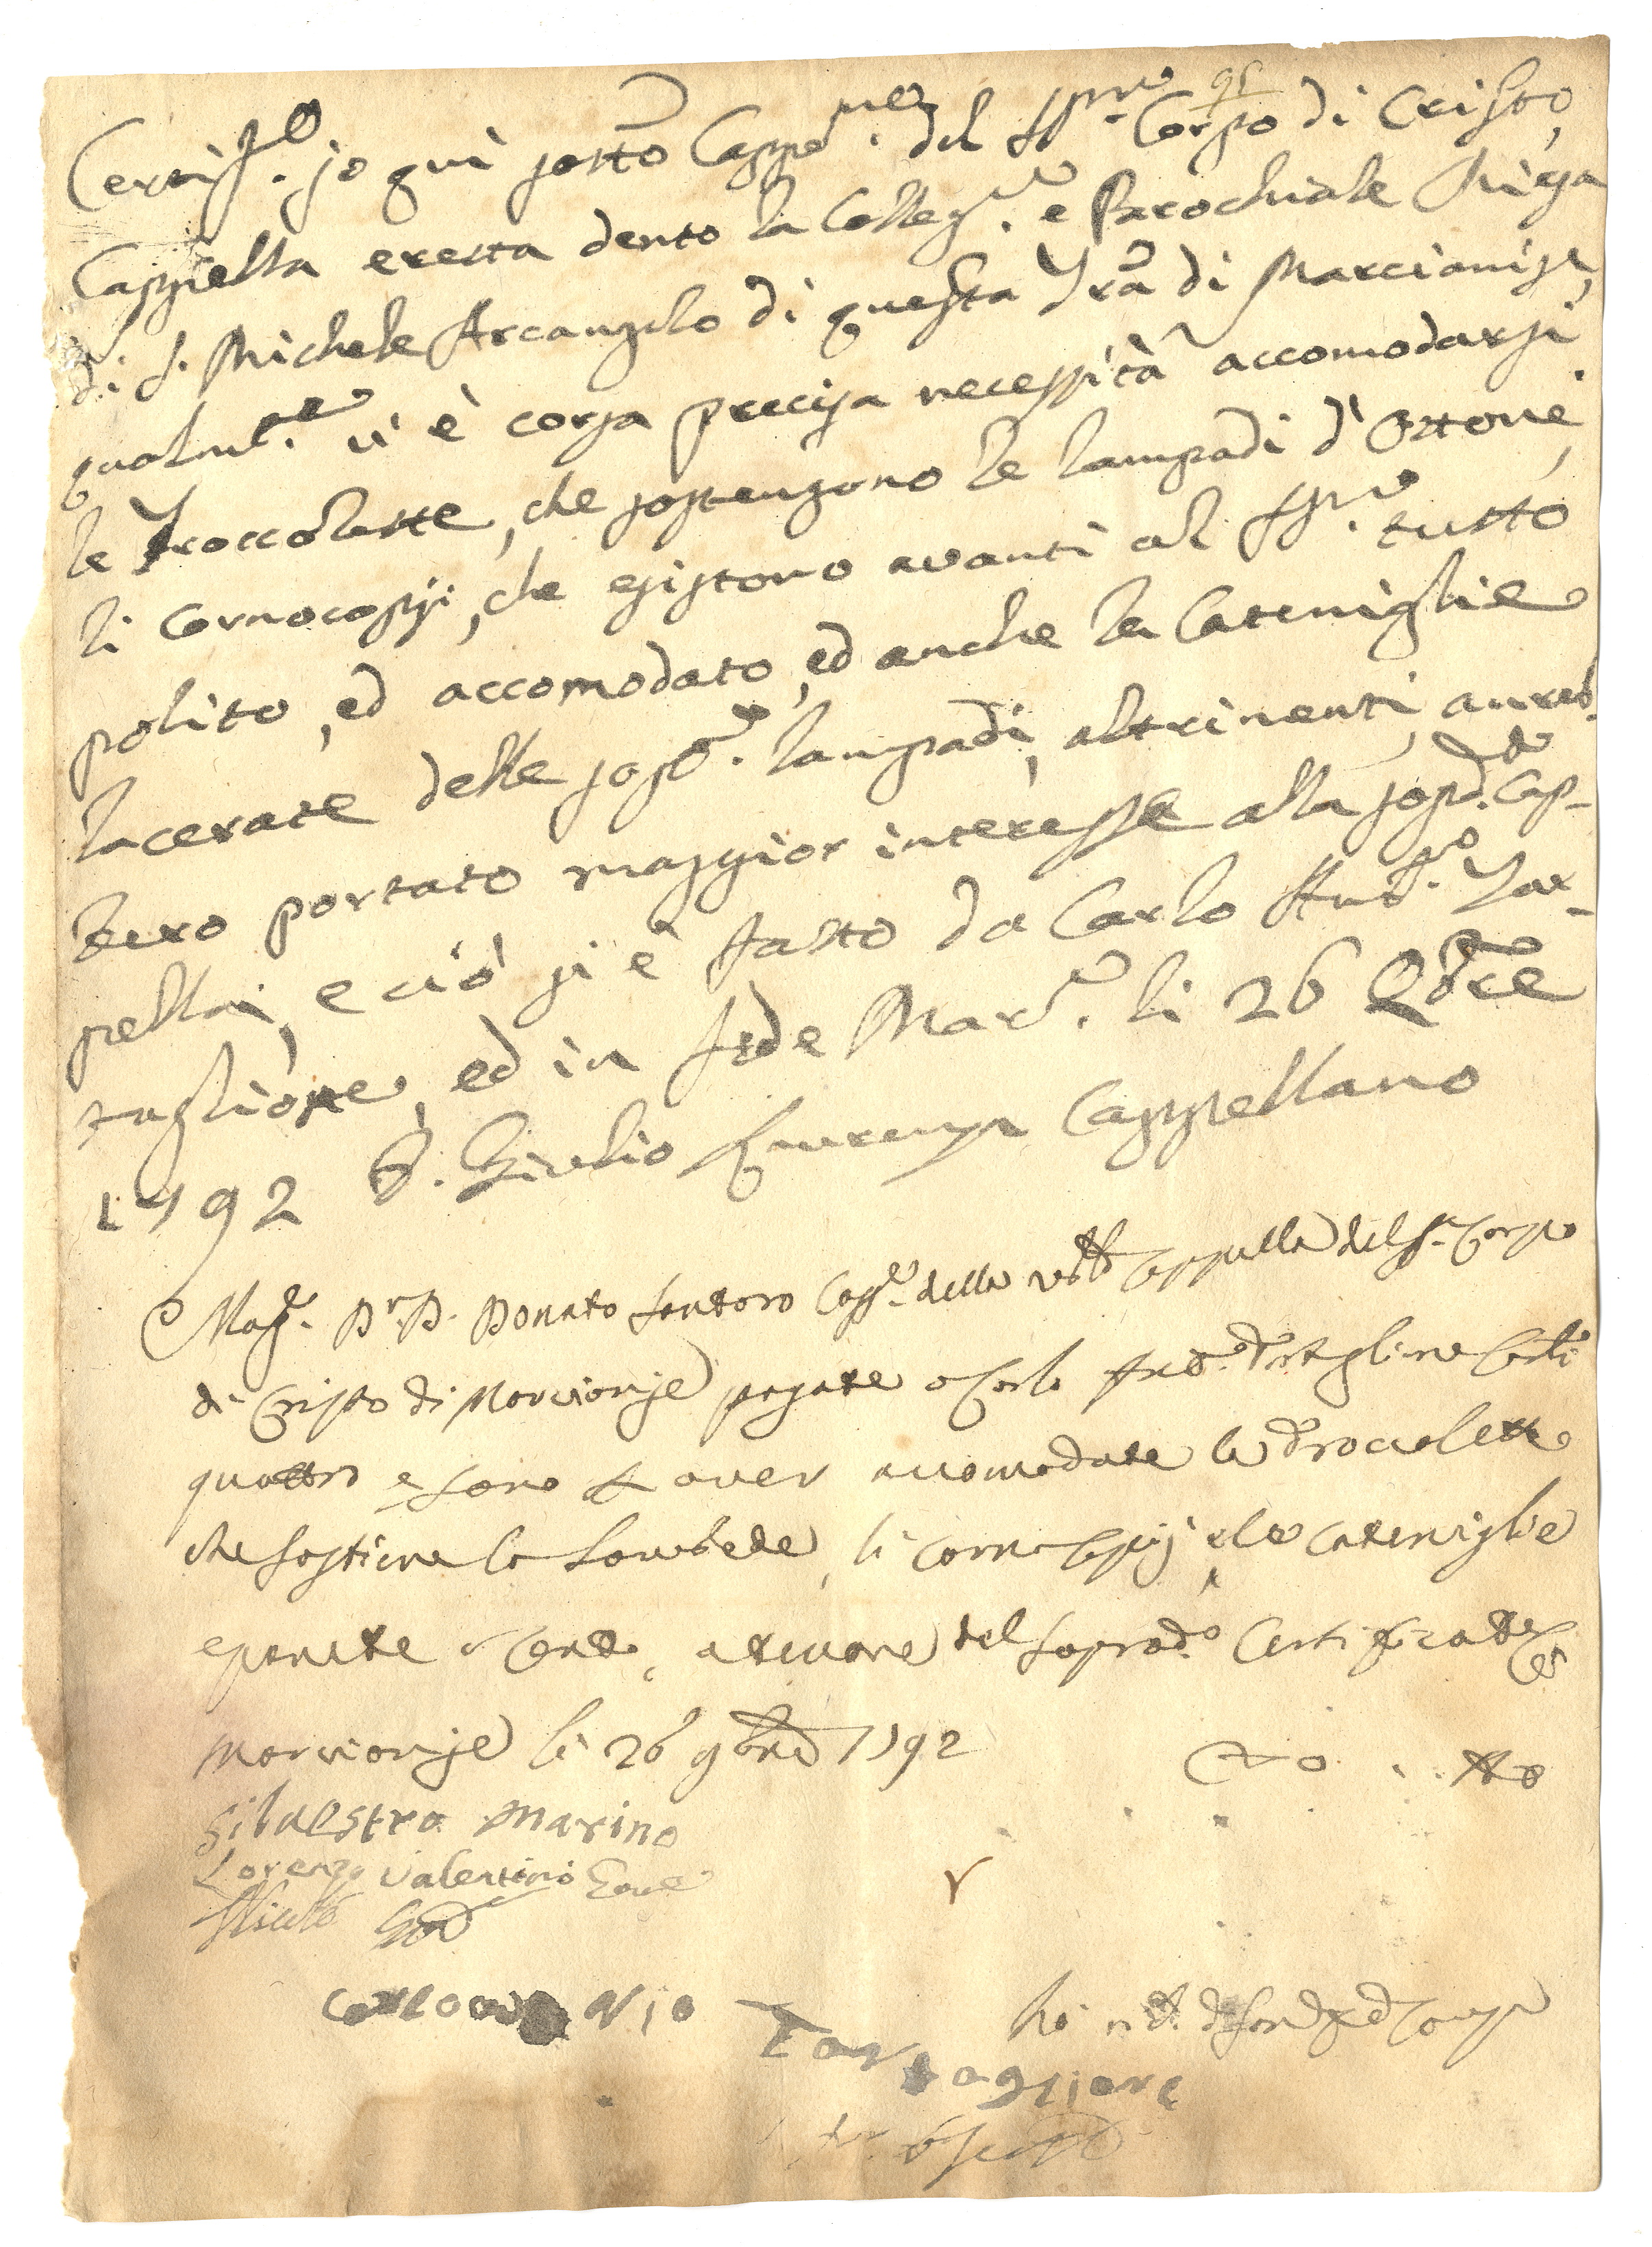 95
Certifco. io qui sotto Cappno. del SSmo. Corpo di Cristo,
Cappella eretta dento la Collega. e Parochiale Chiesa
di S. Michele Arcangelo di questa Tra di Marcianise,
qualmte. vi è corsa precisa necessità accomodarsi
le Troccolette, che sostengono le lampadi d'Ottone,
li Cornocopji, che esistono avanti al SSmo. tutto
polito, ed accomodato, ed anche le Cateniglie
lacerate delle sopde. lampadi, altrimenti, avreb-
bero portato maggior interesse alla sopda. Cap-
pella, e ciò si è fatto da Carlo Anto. Tar-
taglione, ed in fede Marce. li 26 9bre
1792 D. Giulio Cappellano
Mago. Dr. D. Donato Santoro Casse. della Cappella del SSmo. Corpo
di Cristo di Marcianise pagate a Carlo Anto. Tartaglione Carli
quattro e sono p aver accomodate le Troccolette
che sostiene le Lampade, li Cornocopij, e le Cateniglie
a tenore del soprado. Certificato
Marcianise li 26 9bre 1792
Silvestro Marino
Lorenzo Valentino
Carlo Tartaglione